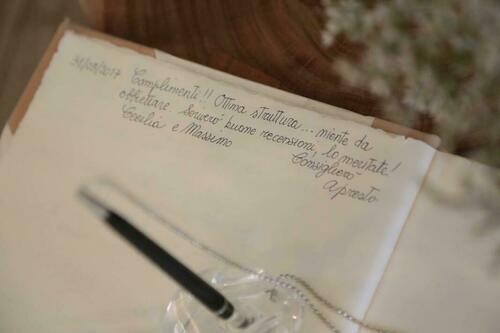 31/03/2017 Complimenti!! Ottima struttura... niente da
obiettare. Scriverò buone recensioni, lo meritate!
Cecilia e Massimo Consiglierò
A presto